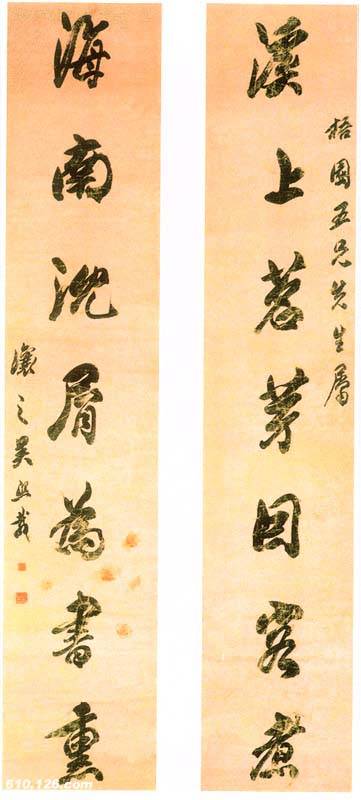 梧園五兄先生屬
溪上茗芽因客煮
海南沈屑為書熏
讓之吳熙載
610.126.com